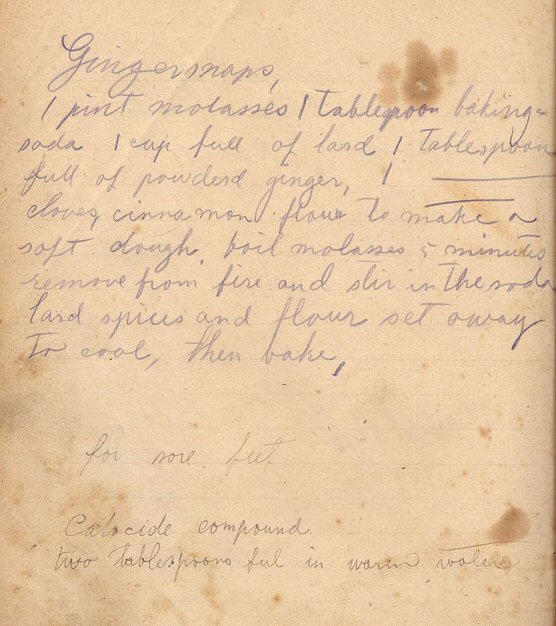 Gingersnaps,
1 pint molasses 1 tablespoon baking=
soda 1 cup full of lard 1 Tablespoon
full of powderd ginger, 1 ———
cloves, cinnamon. flour to make a
soft dough. boil molasses 5 minutes
remove from fire and stir in the soda
lard spices and flour set away
to cool, then bake,
for sore feet
Calocide compound.
two tablespoons ful in warm water